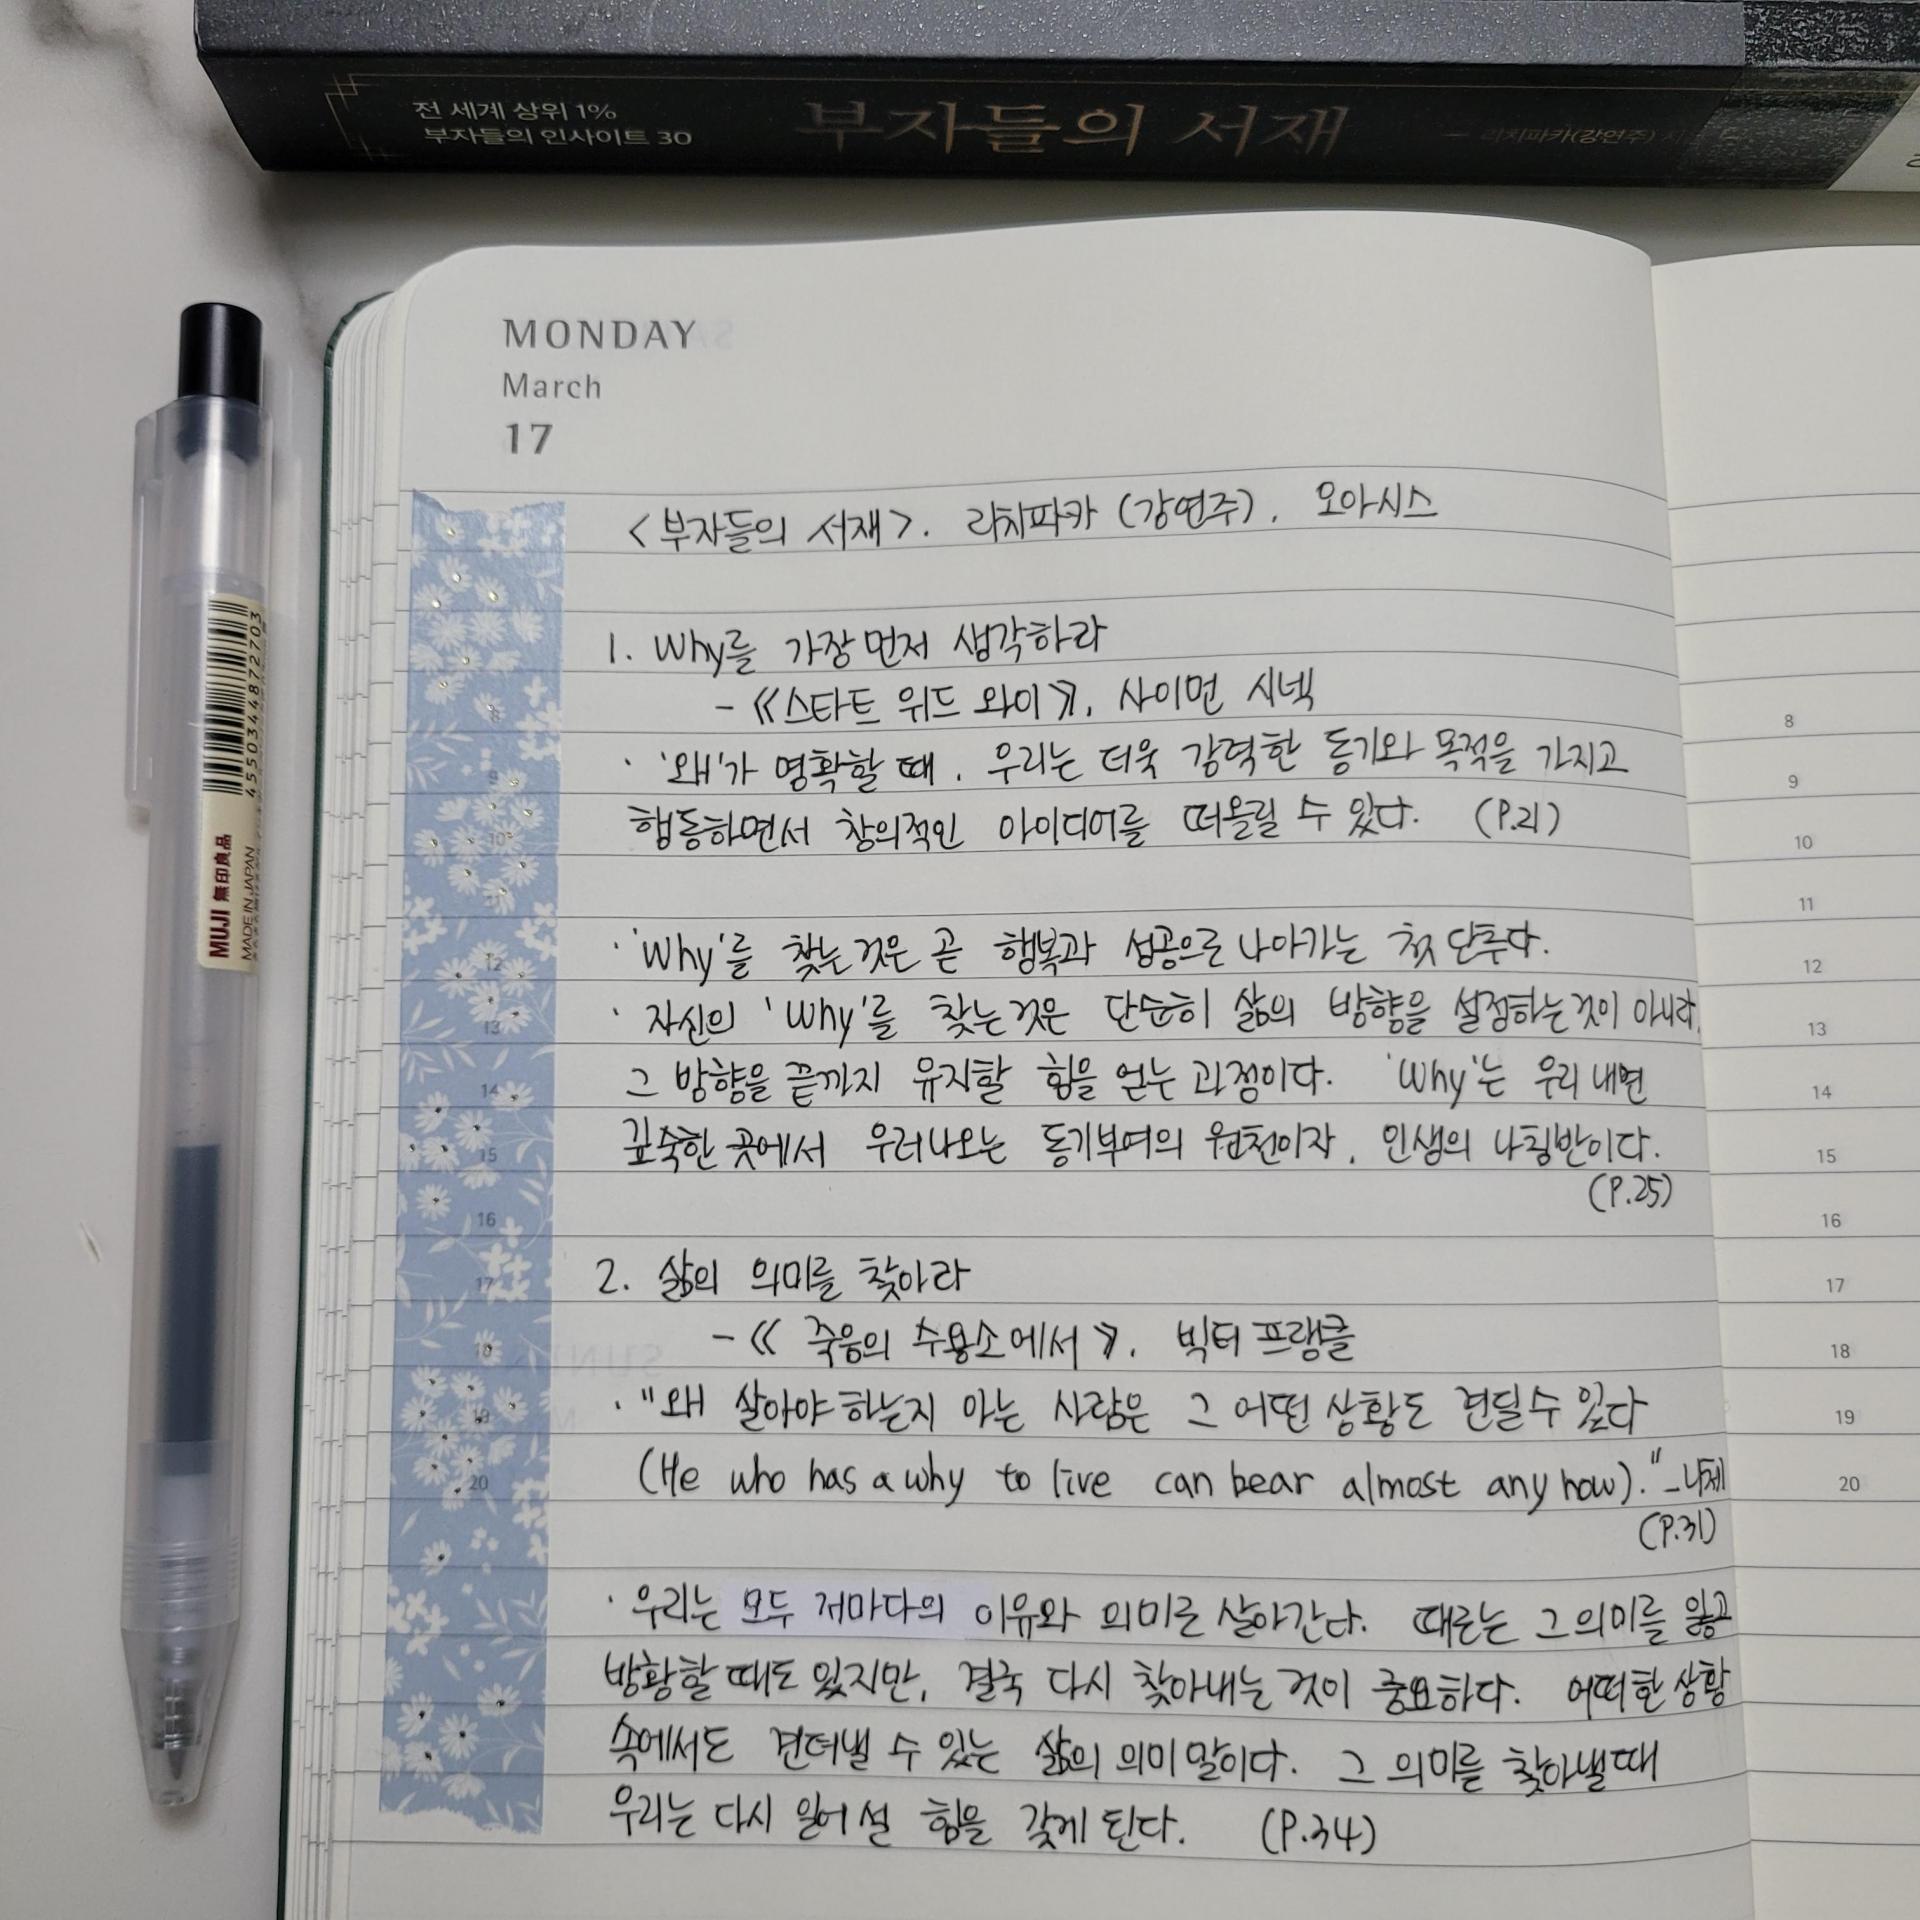 전 세계 상위 1%
부자들의 인사이트 30
부자들의 서재
리치파카(강연주) 지
MONDAY
March
17
<부자들의 서재>. 리치파카 (강연주). 오아시스
1. Why를 가장 먼저 생각하라
-《스타트 위드 와이》, 사이먼 시넥
· '왜'가 명확할 때, 우리는 더욱 강력한 동기와 목적을 가지고
행동하면서 창의적인 아이디어를 떠올릴 수 있다. (P.21)
· 'Why'를 찾는 것은 곧 행복과 성공으로 나아가는 첫 단추다.
· 자신의 'Why'를 찾는 것은 단순히 삶의 방향을 설정하는 것이 아니라,
그 방향을 끝까지 유지할 힘을 얻는 과정이다. 'Why'는 우리 내면
깊숙한 곳에서 우러나오는 동기부여의 원천이자, 인생의 나침반이다.
(P.25)
2. 삶의 의미를 찾아라
-《 죽음의 수용소에서 》, 빅터 프랭클
· "왜 살아야 하는지 아는 사람은 그 어떤 상황도 견딜 수 있다
(He who has a why to live can bear almost any how)." _니체
(P.31)
· 우리는 모두 저마다의 이유와 의미로 살아간다. 때로는 그 의미를 잃고
방황할 때도 있지만, 결국 다시 찾아내는 것이 중요하다. 어떠한 상황
속에서도 견뎌낼 수 있는 삶의 의미 말이다. 그 의미를 찾아낼 때
우리는 다시 일어설 힘을 갖게 된다. (P.34)
8
9
10
11
12
13
14
15
16
17
18
19
20
8
9
10
11
12
13
14
15
16
17
18
19
20
4550344872703
MUJI 無印良品
MADE IN JAPAN